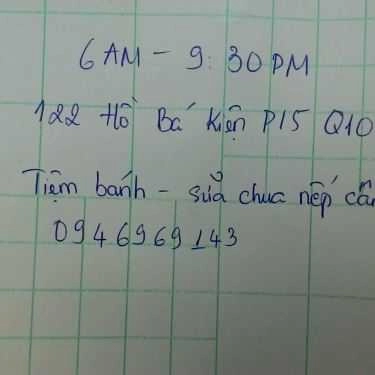 6 AM - 9:30 PM
122 Hồ Bá Kiện P15 Q10
Tiệm bánh - sữa chua nếp cẩm
0946969143